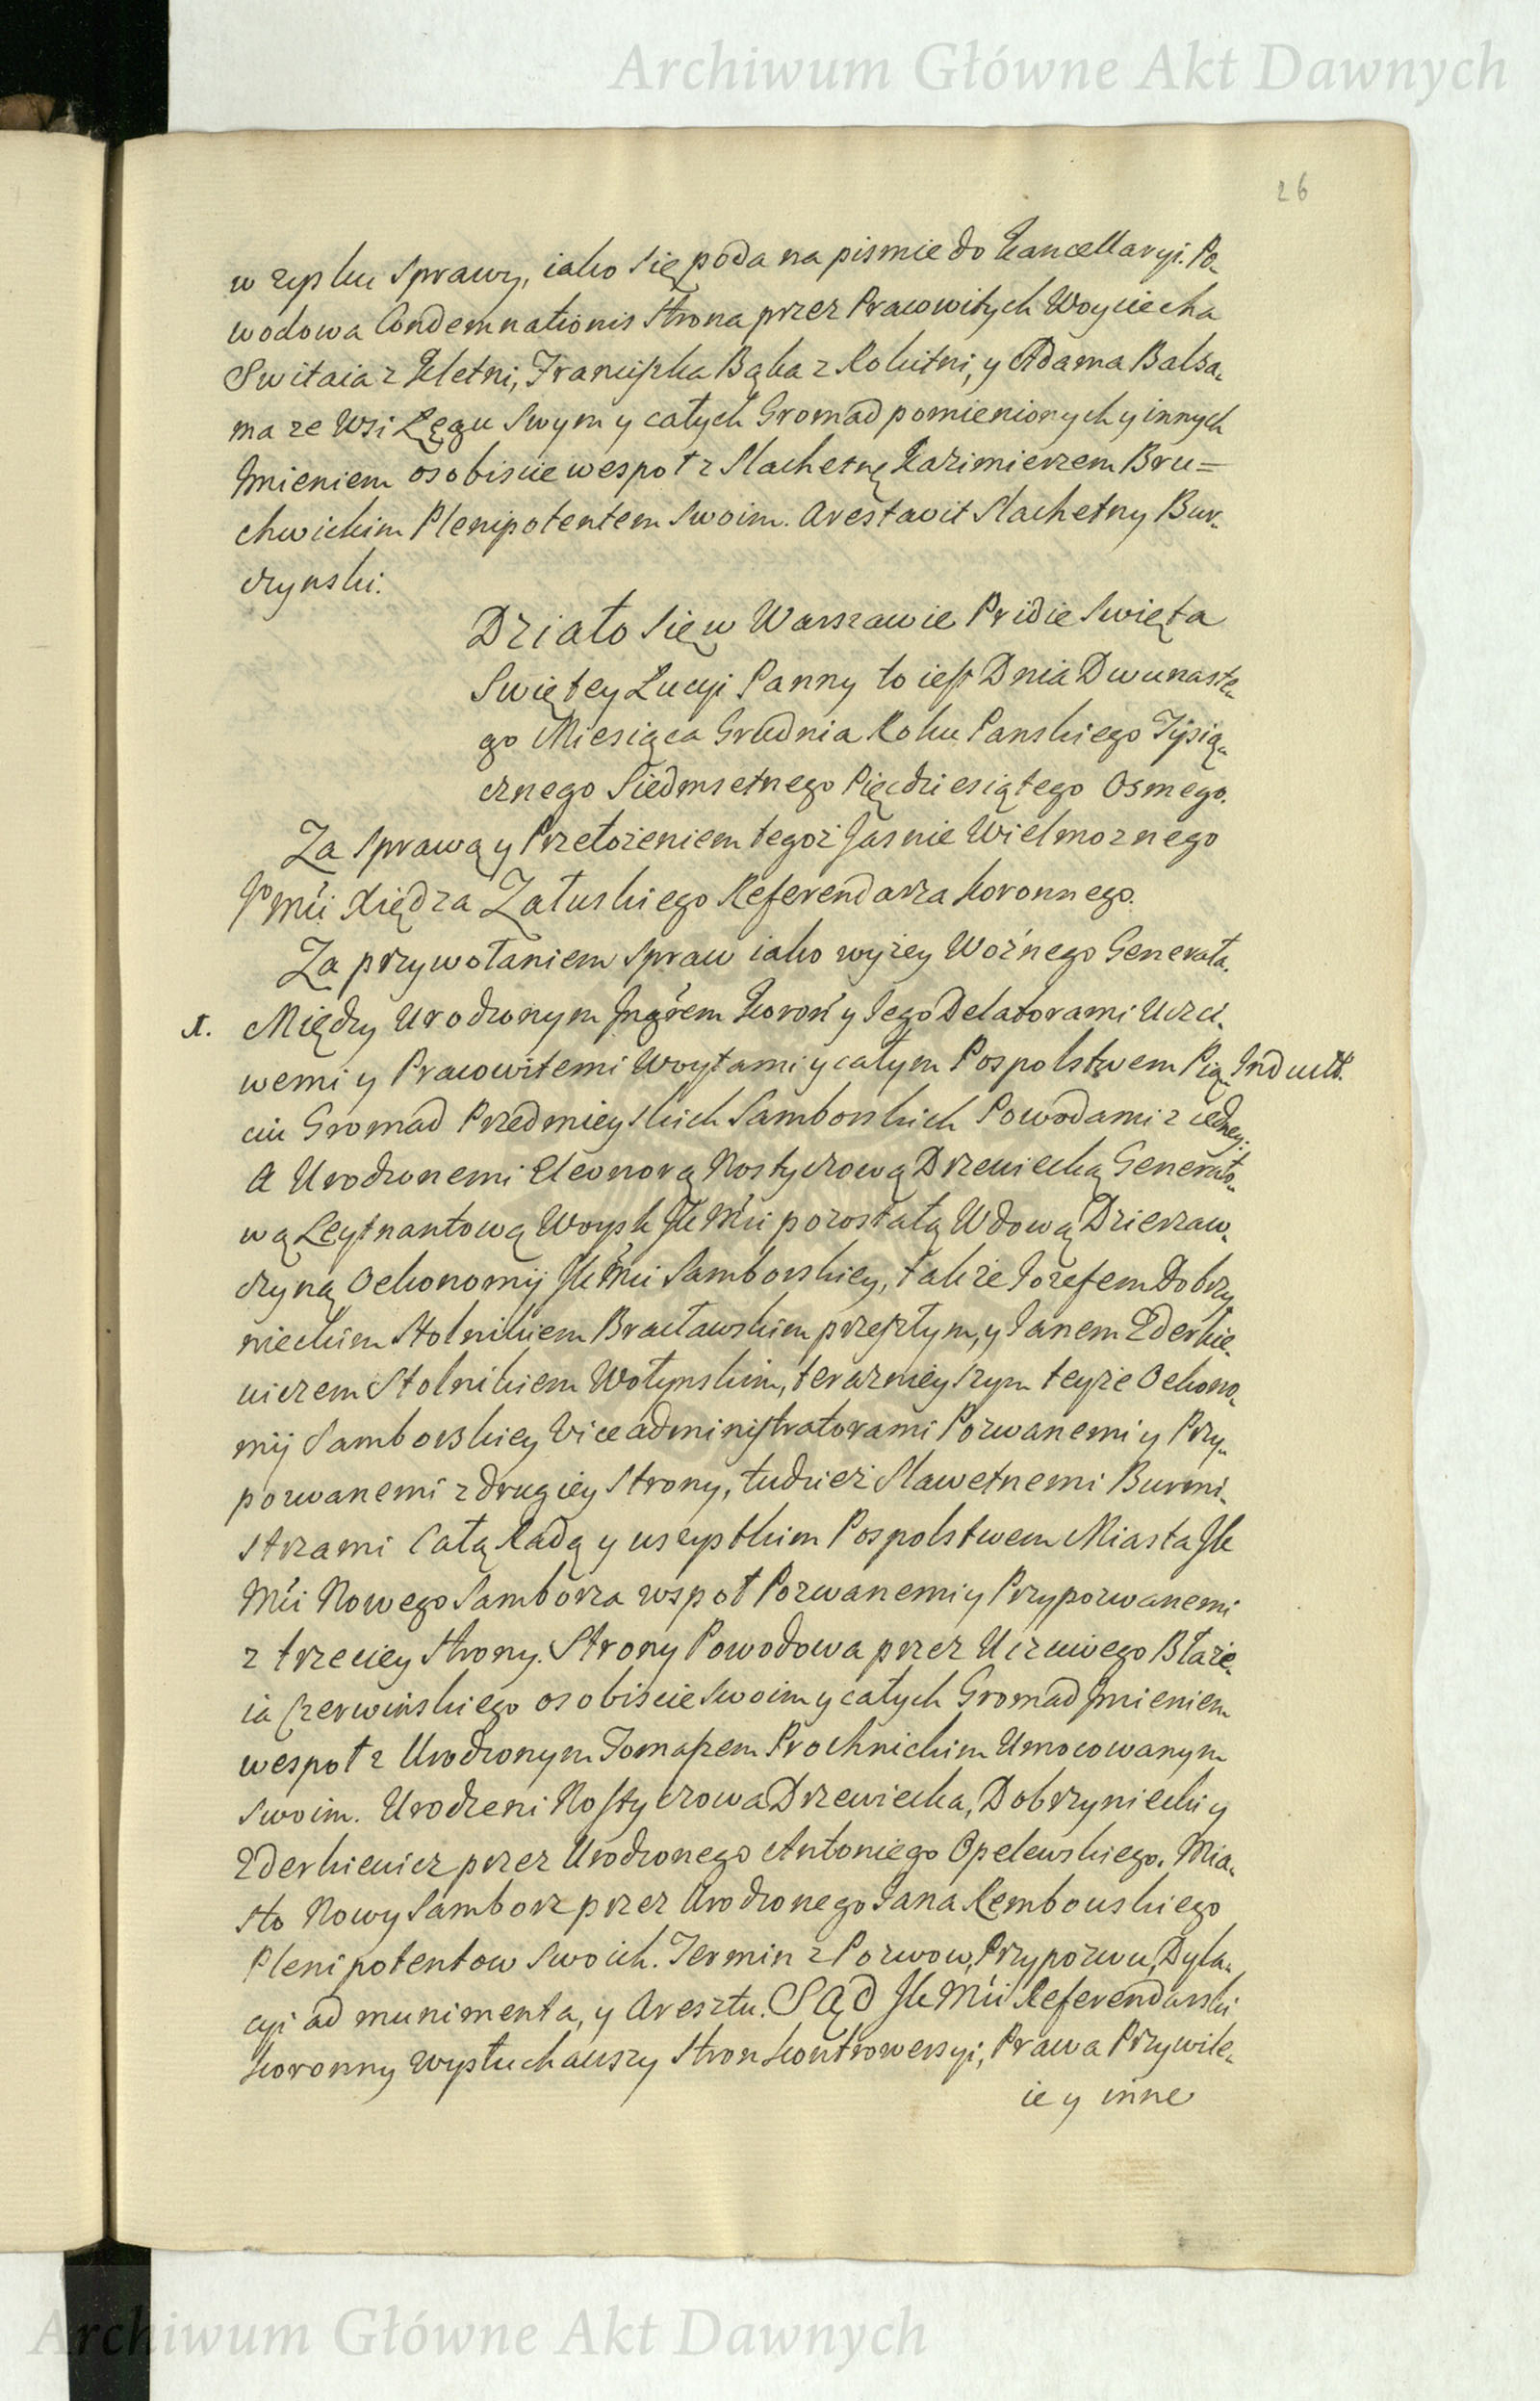 Archiwum Główne Akt Dawnych
26
w zysku sprawy, iako się poda na pismie do Kancellaryi. Po-
wodowa Condemnationis strona przez Pracowitych Woyciecha
Switaia z Kletni, Franciszka Bąka z Rokitni, y Adama Balsa-
ma ze Wsi Łęgu swym y całych Gromad pomienionych y innych
Imieniem osobiscie wespoł z Slachetnę Kazimierzem Bru=
chwickim Plenipotentem swoim. Arestavit Slachetny Bur-
czynski.
Działo się w Warszawie Pridie Swięta
Swiętey Łucyi Panny to iest Dnia Dwunaste-
go Miesiąca Grudnia Roku Panskiego Tysią-
cznego Siedmsetnego Pięcdziesiątego Osmego.
Za sprawą y Przełożeniem tegoż Jasnie Wielmoznego
Jmći Xiędza Załuskiego Referendarza koronnego.
Za przywołaniem spraw iako wyżey Woźnego Generała.
1. Między Urodzonym Ingrem Koron y Iego Delatorami Uczci-
wemi y Pracowitemi Woytami y całym Pospolstwem Pię- Indult.
ciu Gromad Przedmieyskich Samborskich Powodami z iedney:
A Urodzonemi Eleonorą Rostyczową Drzewiecką Generało-
wą Leytnantową Woysk JKMći pozostałą Wdową Dzierzaw-
czyną Oekonomij JKMći Samborskiey, także Iozefem Dobrzy
nieckim Stolnikiem Bracławskim przeszłym, y Ianem Ederkie-
wiczem Stolnikiem Wołynskim, teraznieyszym teyże Oekono-
mij Samborskiey Viceadministratorami Pozwanemi y Przy-
pozwanemi z drugiey strony, tudzież Sławetnemi Burmi-
strzami Całą Radą y wszystkim Pospolstwem Miasta JK
Mći Nowego Samborza wspoł Pozwanemi y Przypozwanemi
z trzeciey strony. Strony Powodowa przez Uczciwego Błaże-
ia Czerwinskiego osobiscie swoim y całych Gromad Imieniem
wespoł z Urodzonym Tomaszem Prochnickim Umocowanym
swoim. Urodzeni Rostyczowa Drzewiecka, Dobrzyniecki y
Ederkiewicz przez Urodzonego Antoniego Opelewskiego. Mia-
sto Nowy Samborz przez Urodzonego Iana Rembowskiego
Plenipotentow swoich. Termin z Pozwow, Przypozwu, Dyla-
cyi ad munimenta, y Aresztu. SĄd JKMći Referendarski
koronny wysłuchawszy stron kontrowersyi, Prawa Przywile-
ie y inne
Archiwum Główne Akt Dawnych